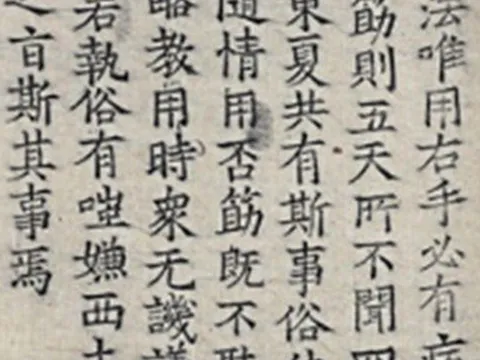 法唯用右手必有
筯則五天所不聞四
東夏共有斯事俗
隨情用否筯旣不
略教用時衆无譏
若執俗有嗤嫌西土
之㫖斯其事焉